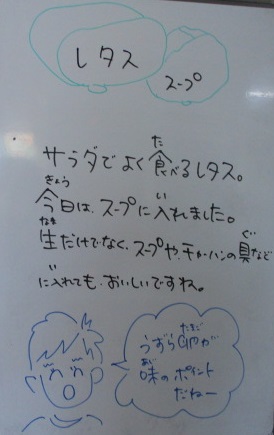 レタス
スープ
サラダでよく食べるレタス。
今日は、スープに入れました。
生だけでなく、スープや、チャーハンの具など
に入れても、おいしいですね。
うずら卵が
味のポイント
だねー